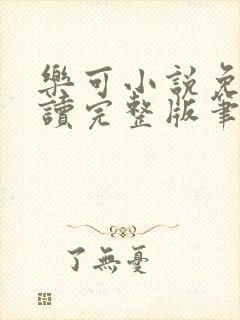 樂可小説免
讀完整版筆
了無憂